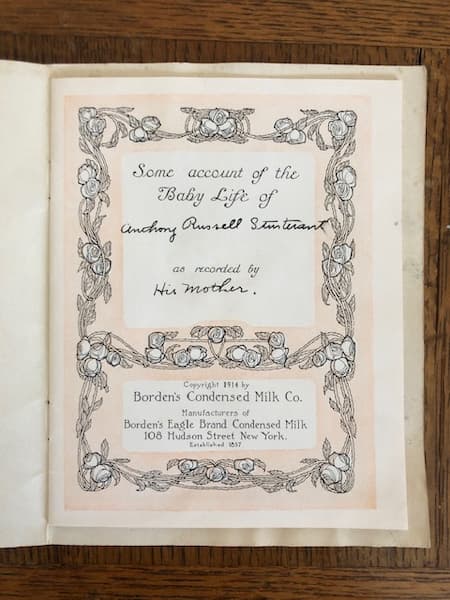 Some account of the
Baby Life of
Anthony Russell Sturtevant
as recorded by
His Mother.
Copyright 1914 by
Borden's Condensed Milk Co.
Manufacturers of
Borden's Eagle Brand Condensed Milk
108 Hudson Street New York.
Established 1857